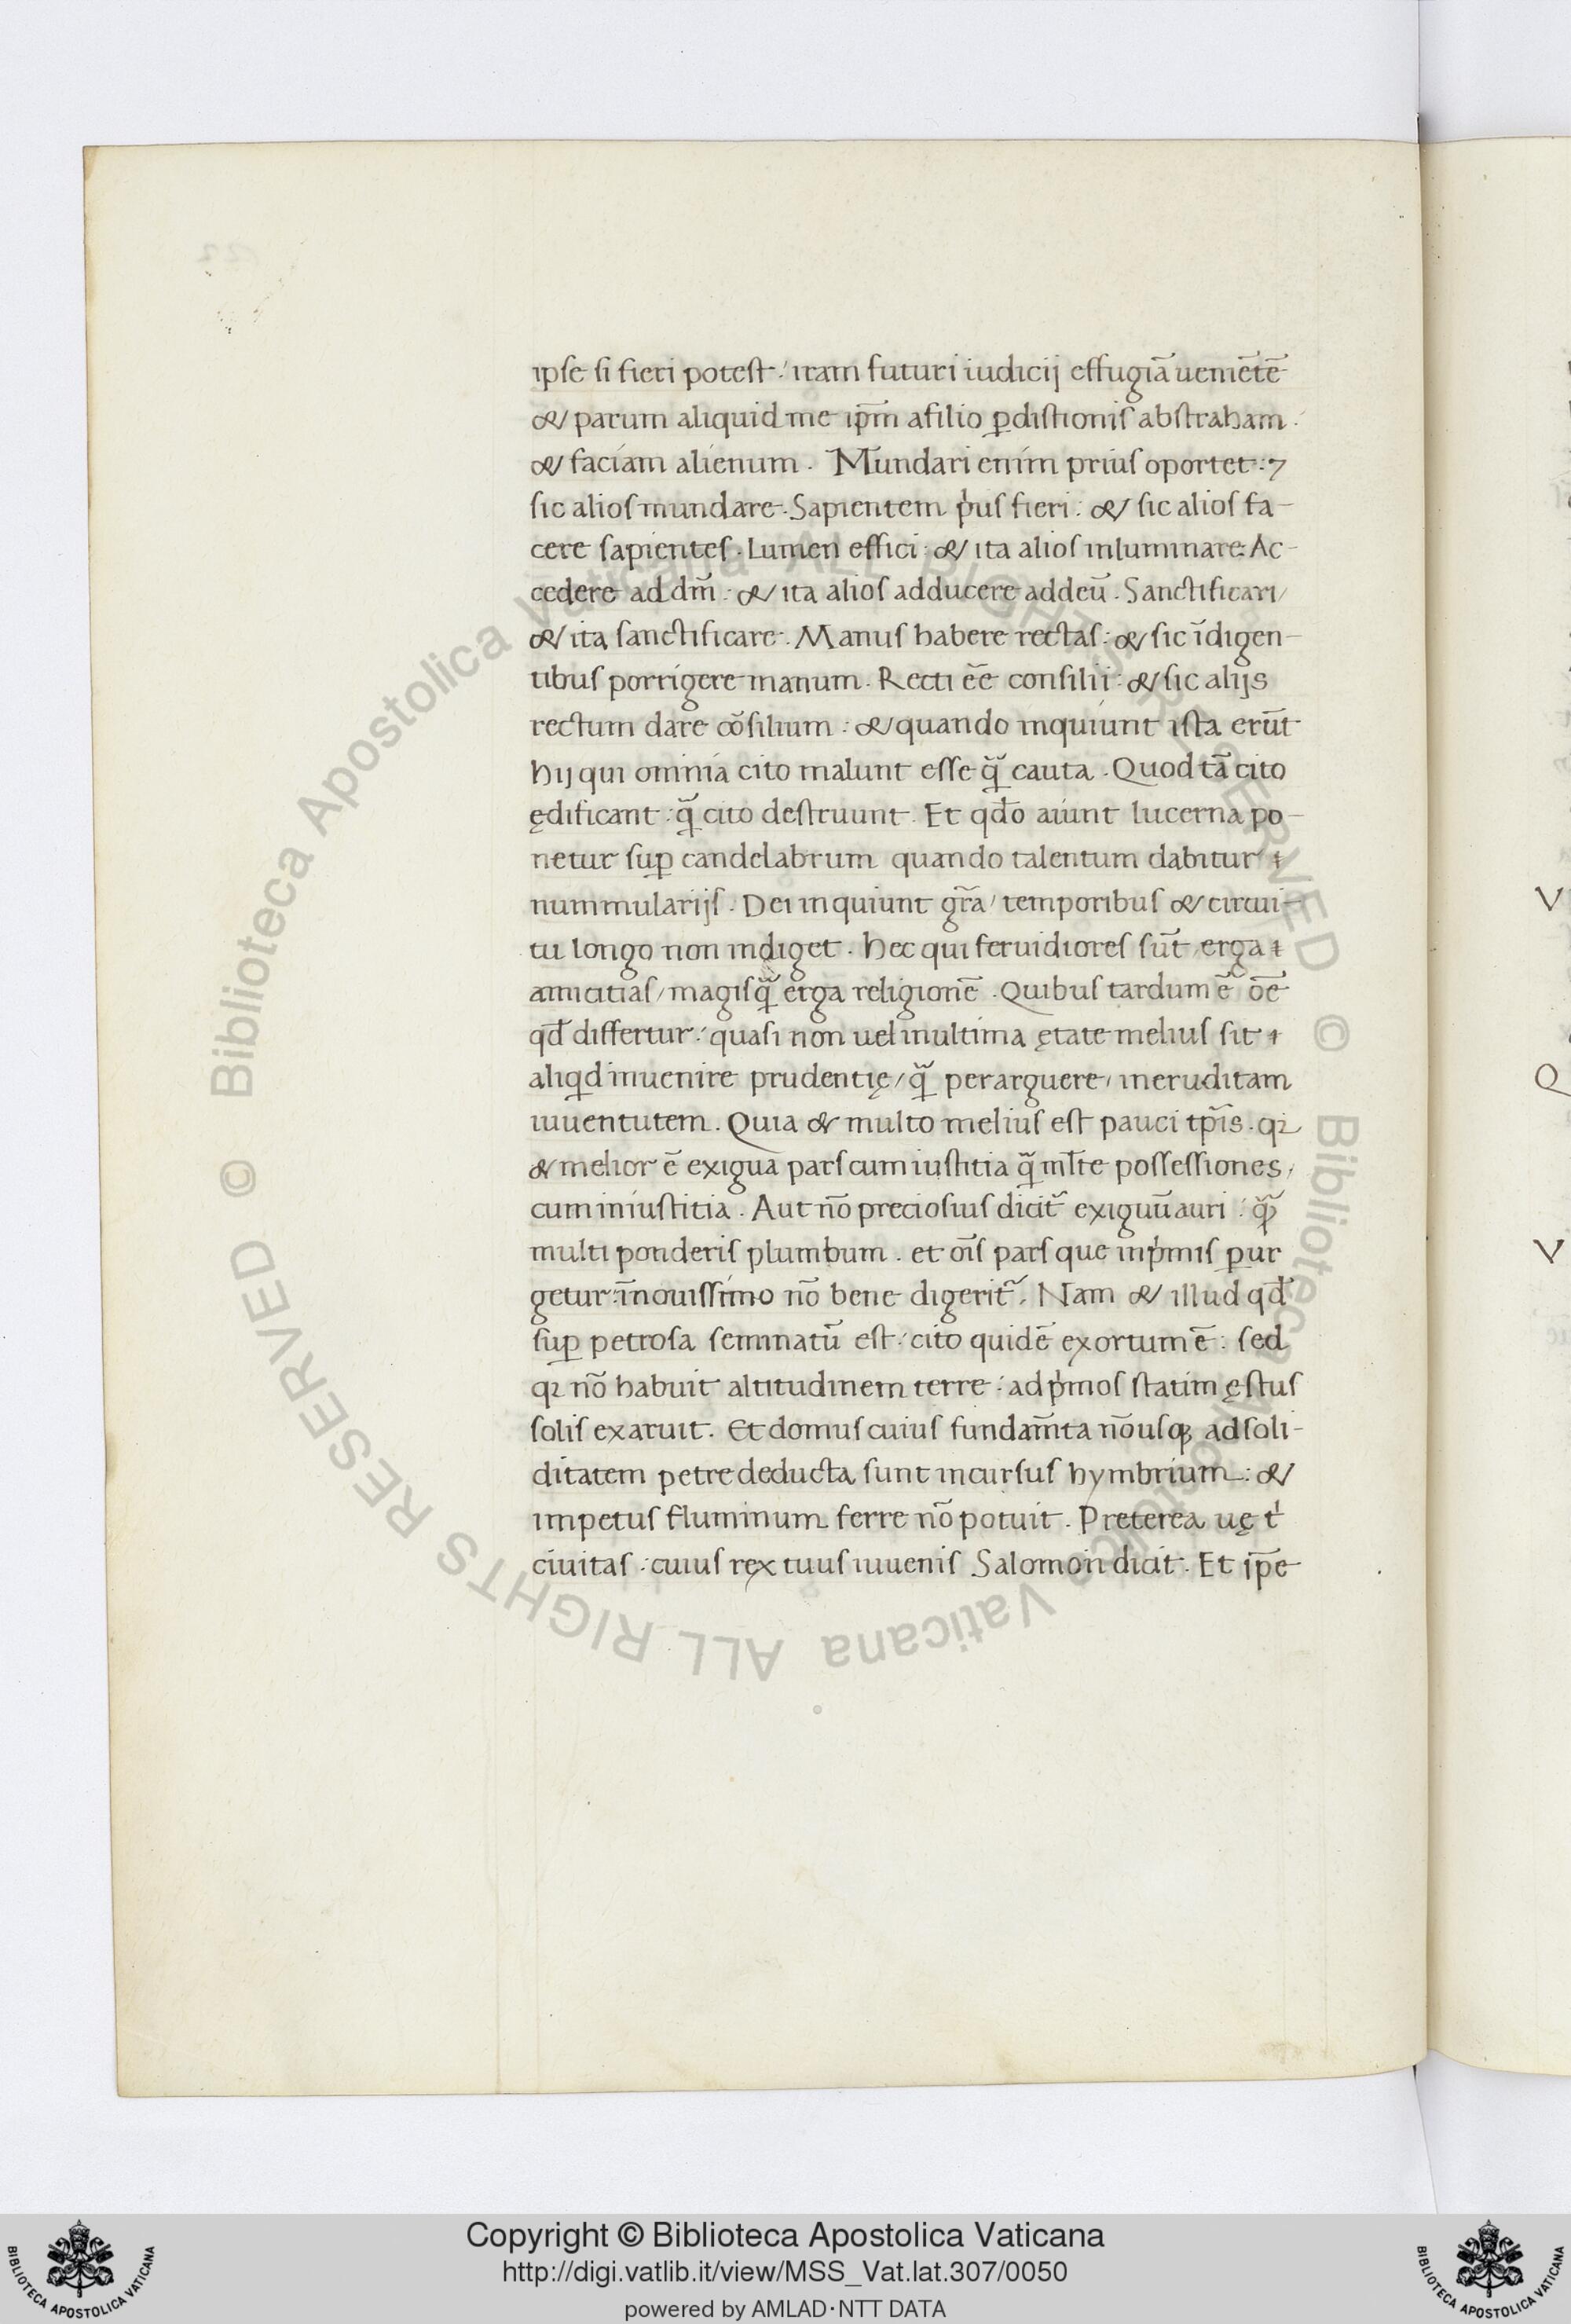 ipse si fieri potest: iram futuri iudicij effugiā ueniētē
& parum aliquid me ip̄m a filio ꝑdistionis abstraham.
& faciam alienum. Mundari enim prius oportet: ⁊
sic alios mundare. Sapientem pͥus fieri: & sic alios fa-
cere sapientes. Lumen effici: & ita alios inluminare: Ac-
cedere ad dm̄: & ita alios adducere ad deū. Sanctificari/
& ita sanctificare. Manus habere rectas: & sic īdigen-
tibus porrigere manum. Recti eē consilii: & sic alijs
rectum dare cōsilium: & quando inquiunt ista erūt
hij qui omnia cito malunt esse ꝙ̄ cauta. Quod tā cito
ędificant: ꝙ̄ cito destruunt. Et qd̄o aiunt lucerna po-
netur suꝑ candelabrum quando talentum dabitur
nummularijs. Dei inquiunt gr̄a/ temporibus & circui-
tu longo non indiget. hec qui feruidiores sūt erga
amicitias/ magis ꝙ̄ erga religionē. Quibus tardum ē oē
qd̄ differtur: quasi non uel in ultima ętate melius sit
aliqd inuenire prudentię/ ꝙ̄ perarguere/ ineruditam
iuuentutem. Quia & multo melius est pauci tp̄is. qꝛ
& melior ē exigua pars cum iustitia ꝙ̄ ml̄te possessiones,
cum iniustitia. Aut nō preciosius dicit᷑ exiguū auri: ꝙ̄
multi ponderis plumbum. et oīs pars que in pͥmis pur
getur: ī nouissimo nō bene digerit᷑. Nam & illud qd̄
suꝑ petrosa seminatū est: cito quidē exortum ē: sed
qꝛ nō habuit altitudinem terre: ad pͥmos statim ęstus
solis exaruit. Et domus cuius fundam̄ta nō usqꝫ ad soli-
ditatem petre deducta sunt incursus hymbrium: &
impetus fluminum ferre nō potuit. Preterea uę tͥ
ciuitas: cuius rex tuus iuuenis Salomon dicit. Et ip̄e
V
Q
V
Copyright © Biblioteca Apostolica Vaticana
http://digi.vatlib.it/view/MSS_Vat.lat.307/0050
powered by AMLAD·NTT DATA
BIBLIOTECA APOSTOLICA VATICANA
BIBLIOTECA APOSTOLICA VATICANA
© Biblioteca Apostolica Vaticana ALL RIGHTS RESERVED
© Biblioteca Apostolica Vaticana ALL RIGHTS RESERVED